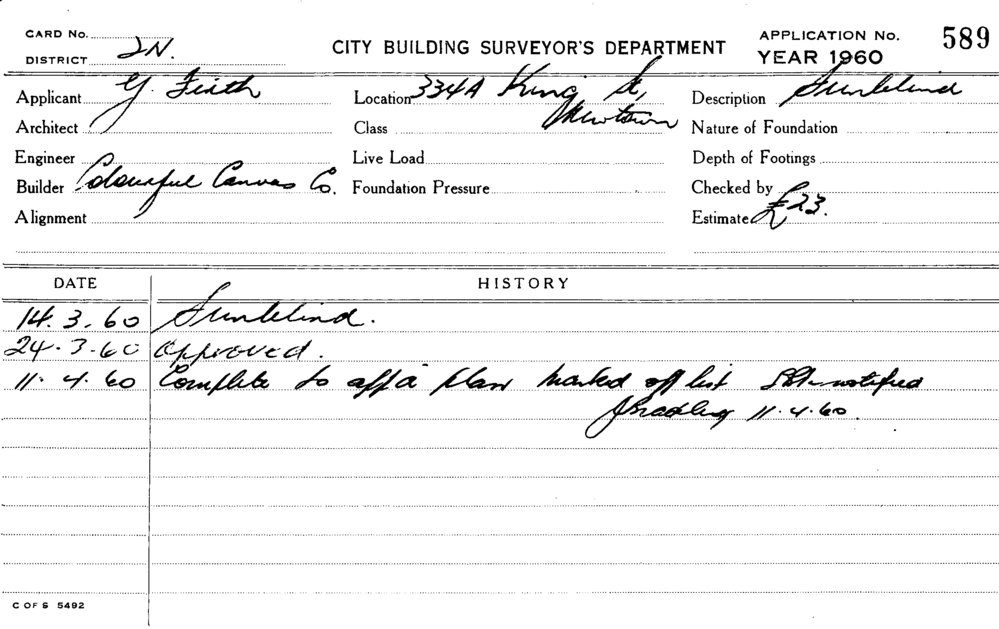 CARD No.
DISTRICT 2N.
CITY BUILDING SURVEYOR'S DEPARTMENT
APPLICATION No. 589
YEAR 1960
Applicant G. Firth Location 334A King St, Description Sunblind
Architect Class Newtown Nature of Foundation
Engineer Live Load Depth of Footings
Builder Colourful Canvas Co. Foundation Pressure Checked by
Alignment Estimate £23.
DATE HISTORY
14.3.60 Sunblind.
24.3.60 Approved.
11.4.60 Complete to app'd plan marked off list notified
11.4.60.
C OF S 5492